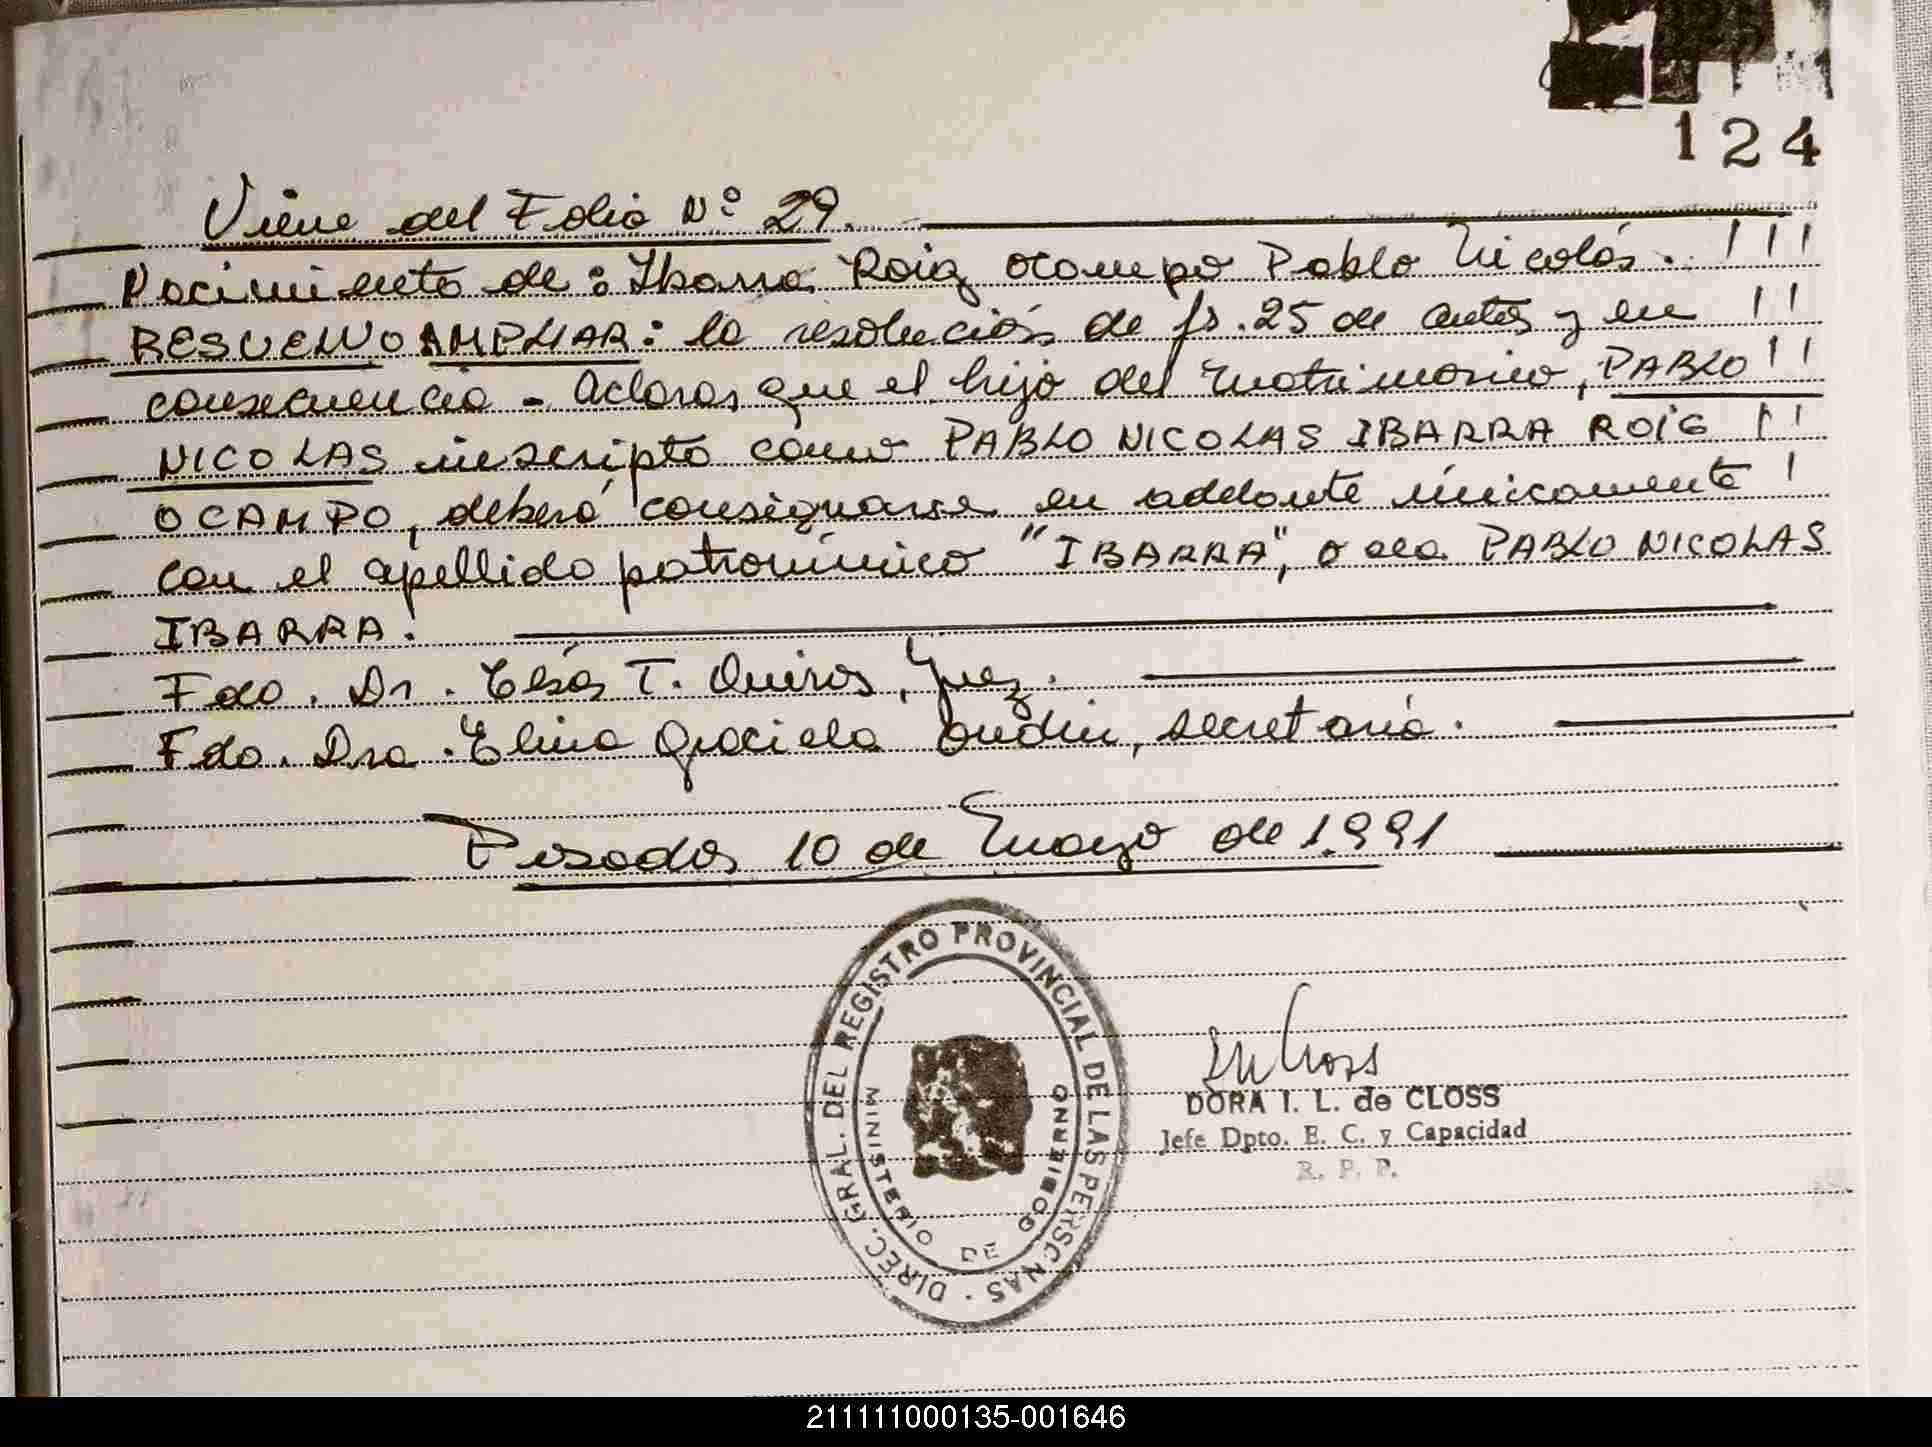 124
Viene del Folio Nº 29.
Nacimiento de: Ibarra Roig Ocampo Pablo Nicolás.
RESUELVO AMPLIAR: la resolución de fs. 25 de autos y en
consecuencia - Aclaras que el hijo del matrimonio, PABLO
NICOLAS inscripto como PABLO NICOLAS IBARRA ROIG
OCAMPO, deberá consignarse en adelante únicamente
con el apellido patronímico "IBARRA", o sea PABLO NICOLAS
IBARRA.
Fdo. Dr. T. Quiros, Juez.
Fdo. Dra. Elina Graciela, secretaria.
Posadas 10 de Mayo de 1.991
DIREC. GRAL. DEL REGISTRO PROVINCIAL DE LAS PERSONAS
MINISTERIO DE GOBIERNO
DORA I. L. de CLOSS
Jefe Dpto. E. C. y Capacidad
R. P. P.
211111000135-001646